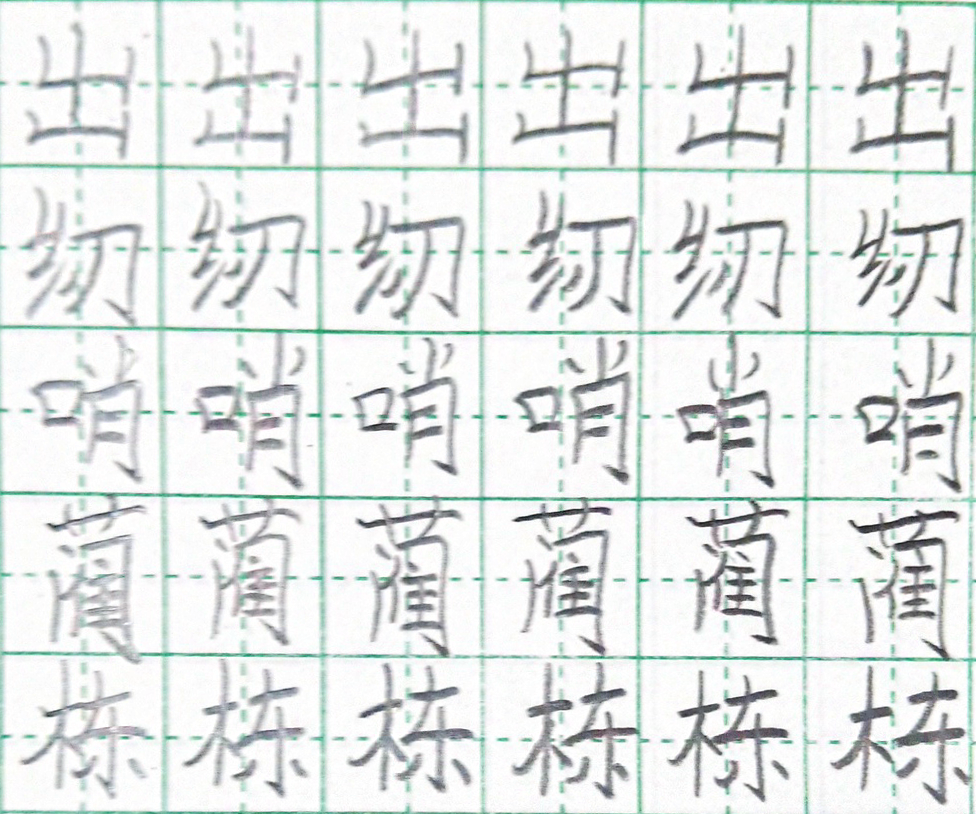 出出出出出出
纫纫纫纫纫纫
哨哨哨哨哨哨
蔺蔺蔺蔺蔺蔺
栋栋栋栋栋栋